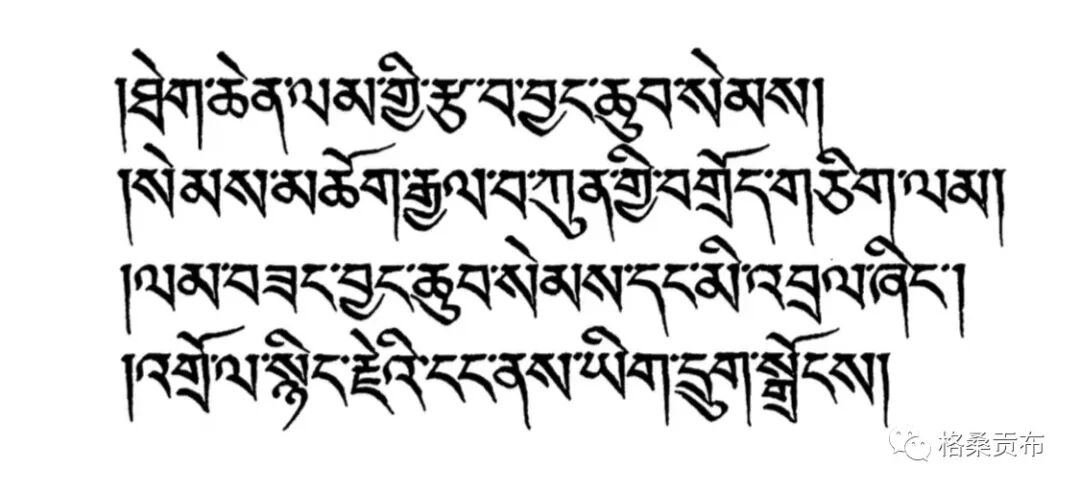 །ཐེག་ཆེན་ལམ་གྱི་རྩ་བ་བྱང་ཆུབ་སེམས།
།སེམས་མཆོག་རྒྱལ་བ་ཀུན་གྱི་བགྲོད་གཅིག་ལམ།
།ལམ་བཟང་བྱང་ཆུབ་སེམས་དང་མི་འབྲལ་ཞིང་།
།འགྲོ་ལ་སྙིང་རྗེའི་ངང་ནས་ཡིག་དྲུག་སྒྲོངས།
格桑贡布